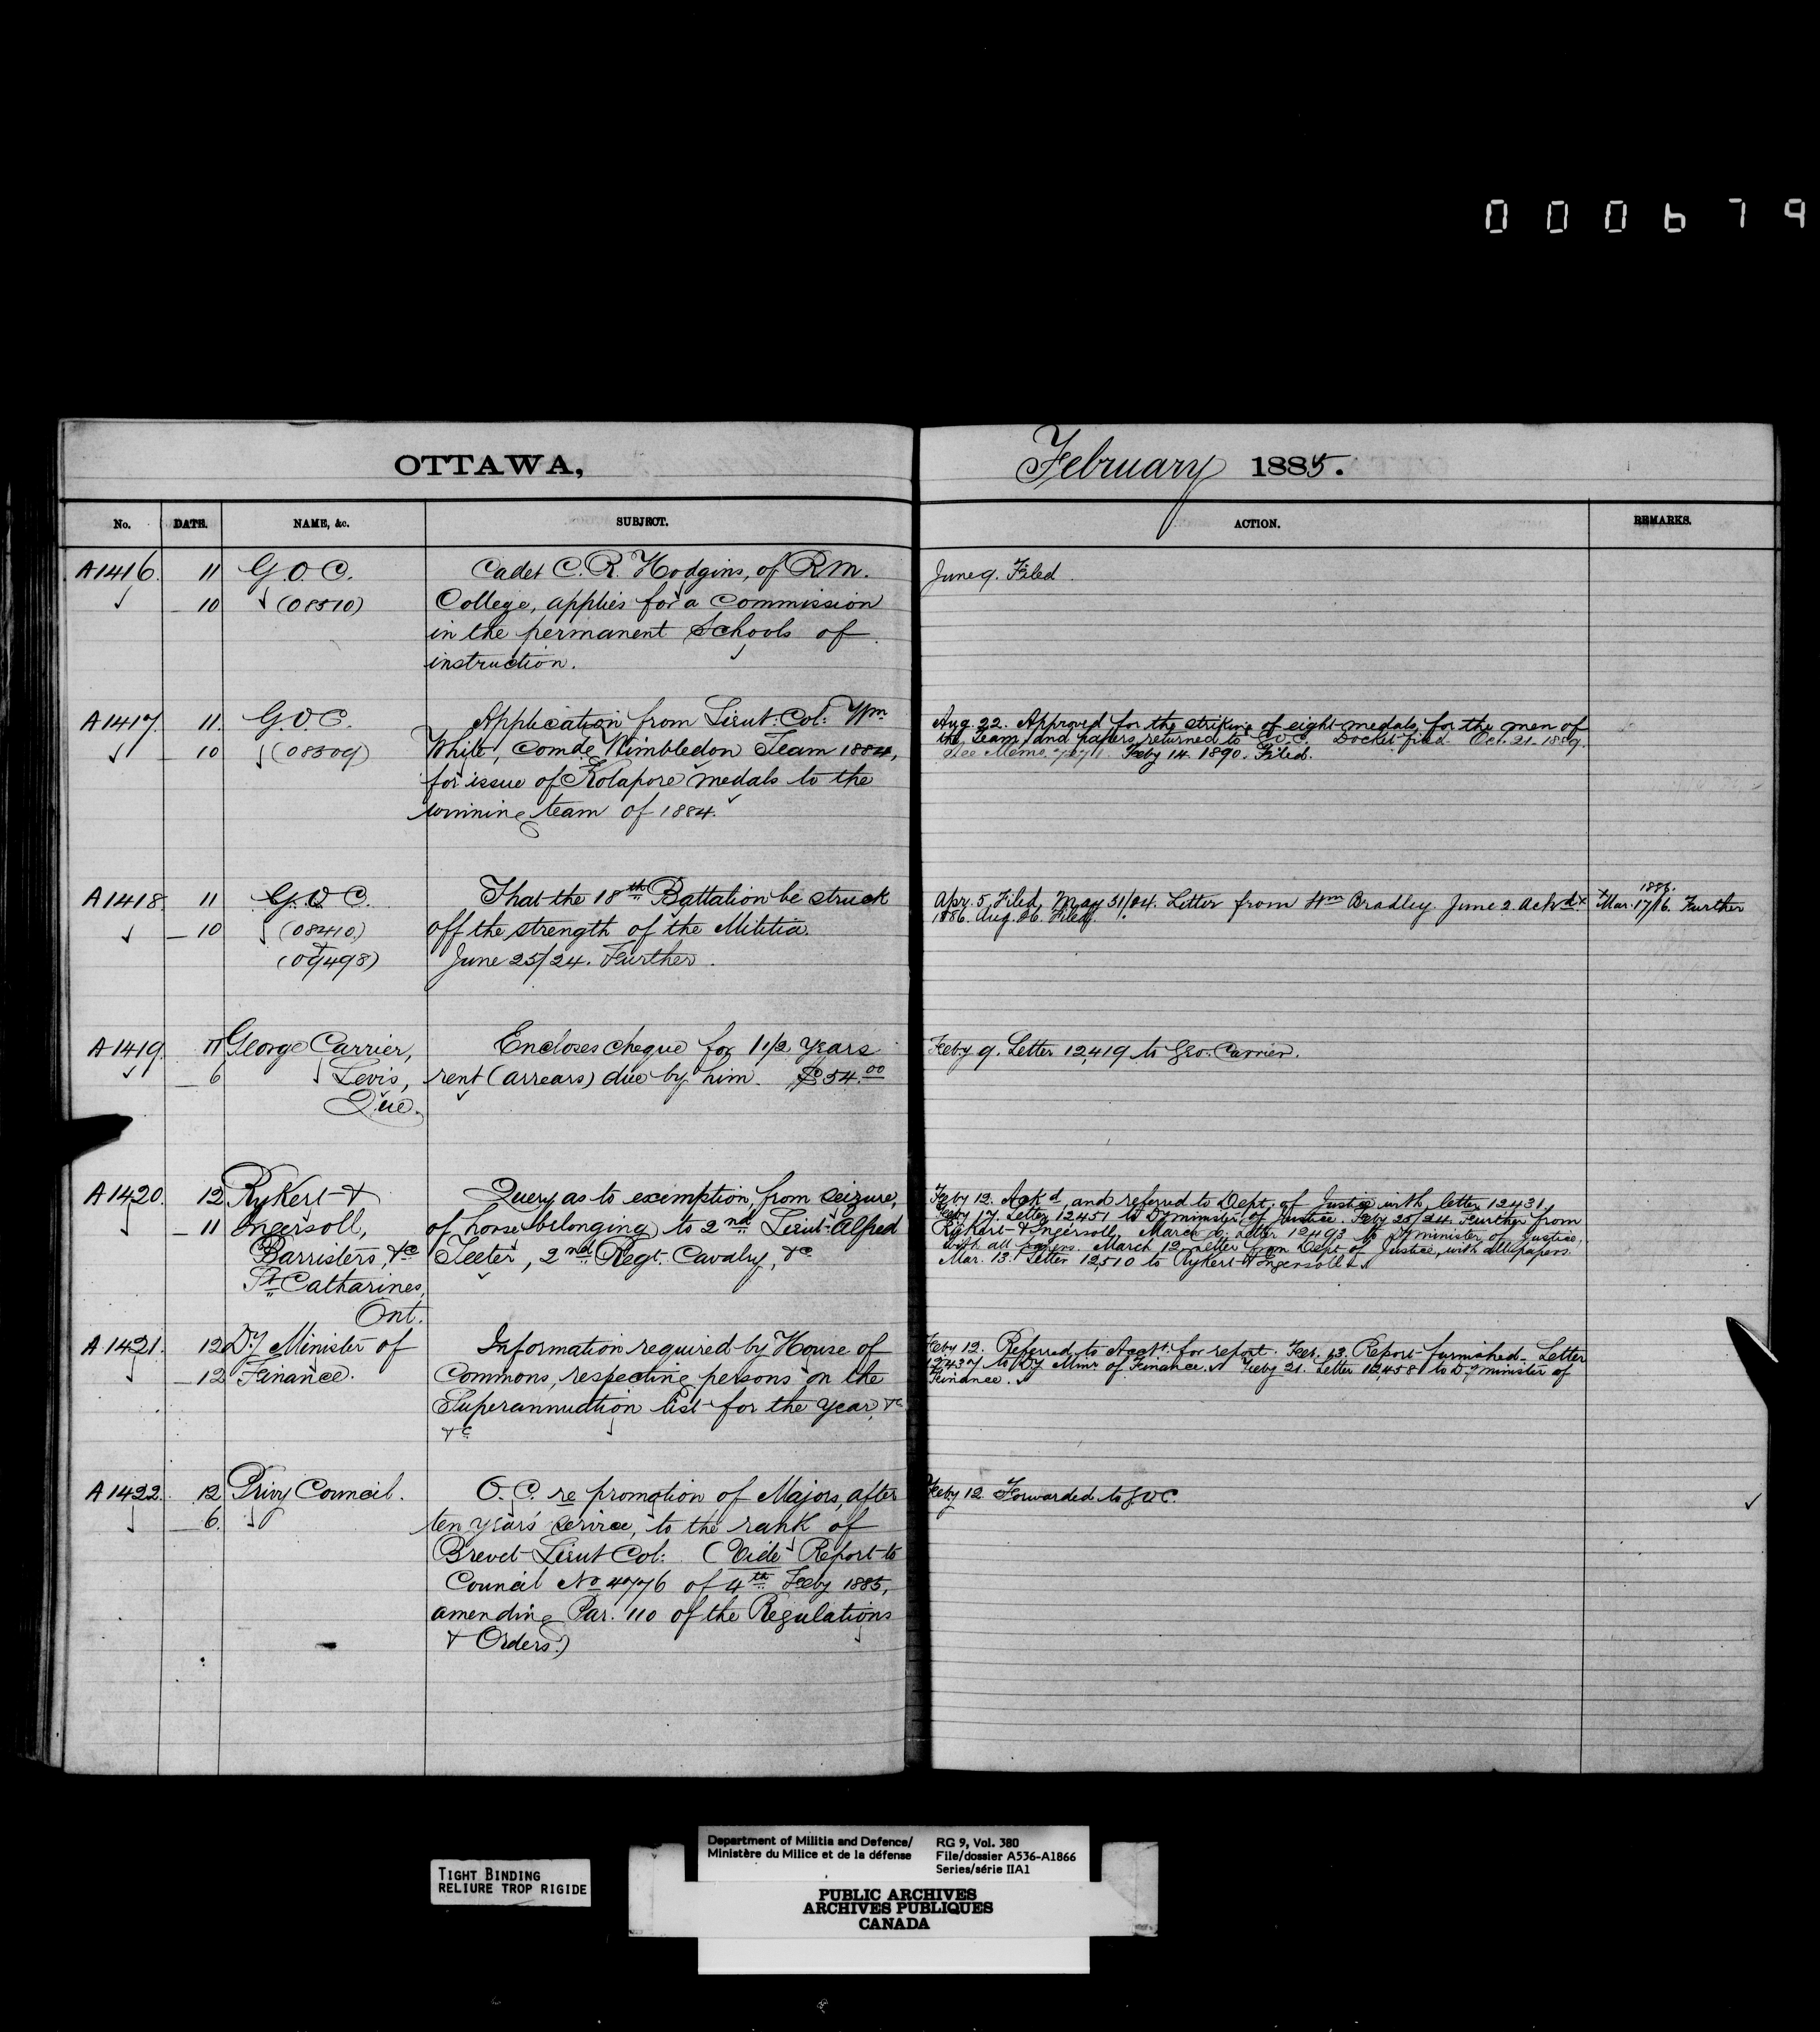 000679
OTTAWA,
No. DATE. NAME, &c. SUBJECT.
A1416. 11 G.O.C. Cadet C. R. Hodgins, of R.M.
10 (08510) College, applies for a commission
in the permanent Schools of
instruction.
A1417. 11. G.O.C. Application from Lieut: Col: Wm
10 (08509) White, Comdg Wimbledon Team 1884,
for issue of Kolapore medals to the
winning team of 1884.
A1418 11 G.O.C. That the 18th Battalion be struck
10 (08410) off the strength of the Militia.
(09498) June 25/24. Further.
A1419 11 George Carrier, Encloses cheque for 1 1/2 years
6 Levis, rent (arrears) due by him. $54.00
Que.
A1420. 12 Rykert & Query as to exemption, from seizure,
11 Ingersoll, of horse belonging to 2nd Lieut. Alfred
Barristers, &c Teeter, 2nd Regt. Cavalry, &c
St Catharines,
Ont.
A1421. 12 Dy Minister of Information required by House of
12 Finance. Commons, respecting persons on the
Superannuation list for the year, &c
&c
A1422. 12 Privy Council. O.C. re promotion of Majors, after
6. ten years' service, to the rank of
Brevet Lieut Col: (Vide Report to
Council No 4776 of 4th Feby 1885,
amending Par. 110 of the Regulations
& Orders.)
February 1885.
ACTION. REMARKS.
June 9. Filed.
Aug. 22. Approved for the striking of eight medals, for the men of
the Team, and papers returned to G.O.C. Docket filed. Oct. 21. 1889.
See Memo. Feby 14. 1890. Filed.
1886.
Apr. 5, Filed, May 31/04. Letter from Bradley. June 2. Ackd. x x Mar. 17/16. Further
1886. Aug. 26. Filed.
Feby 9. Letter 12,419 to Geo. Carrier.
Feby 12. Ackd, and referred to Dept. of Justice with letter 12431,
Feby 17. Letter 12451 to Dy minister of Justice. Feby 25/24. Further from
Rykert & Ingersoll, March 6. Letter 12493 to Dy minister of Justice,
with all papers. March 12. Letter from Dept of Justice, with all papers.
Mar. 13. Letter 12,510 to Rykert & Ingersoll.
Feby 12. Referred to Acct. for report. Feb. 13. Report furnished. Letter
12437 to Dy Minr of Finance. Feby 21. Letter 12,458 to Dy minister of
Finance.
Feby 12. Forwarded to G.O.C.
TIGHT BINDING
RELIURE TROP RIGIDE
Department of Militia and Defence/
Ministère du Milice et de la défense
RG 9, Vol. 380
File/dossier A536-A1866
Series/série IIA1
PUBLIC ARCHIVES
ARCHIVES PUBLIQUES
CANADA